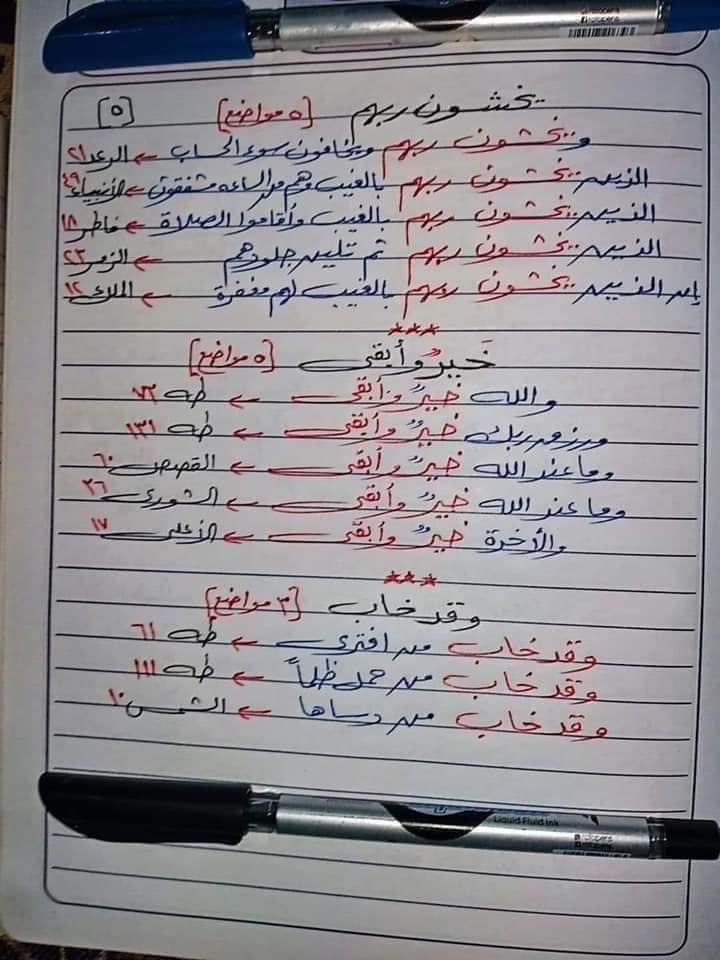 يخشون ربهم [٥ مواضع] [٥]
ويخشون ربهم ويخافون سوء الحساب ← الرعد ٢١
الذين يخشون ربهم بالغيب وهم من الساعه مشفقون ← الأنبياء ٤٩
الذين يخشون ربهم بالغيب وأقاموا الصلاة ← فاطر ١٨
الذين يخشون ربهم ثم تلين جلودهم ← الزمر ٢٣
إن الذين يخشون ربهم بالغيب لهم مغفرة ← الملك ١٢
***
خَيرٌ وأبقى [٥ مواضع]
والله خيرٌ وأبقى ← طه ٧٣
ورزق ربك خيرٌ وأبقى ← طه ١٣١
وما عند الله خيرٌ وأبقى ← القصص ٦٠
وما عند الله خيرٌ وأبقى ← الشورى ٣٦
والأخرة خيرٌ وأبقى ← الأعلى ١٧
***
وقد خاب [٣ مواضع]
وقد خاب من افترى ← طه ٦١
وقد خاب من حمل ظلماً ← طه ١١١
وقد خاب من دساها ← الشمس ١٠
Liquid Fluid Ink